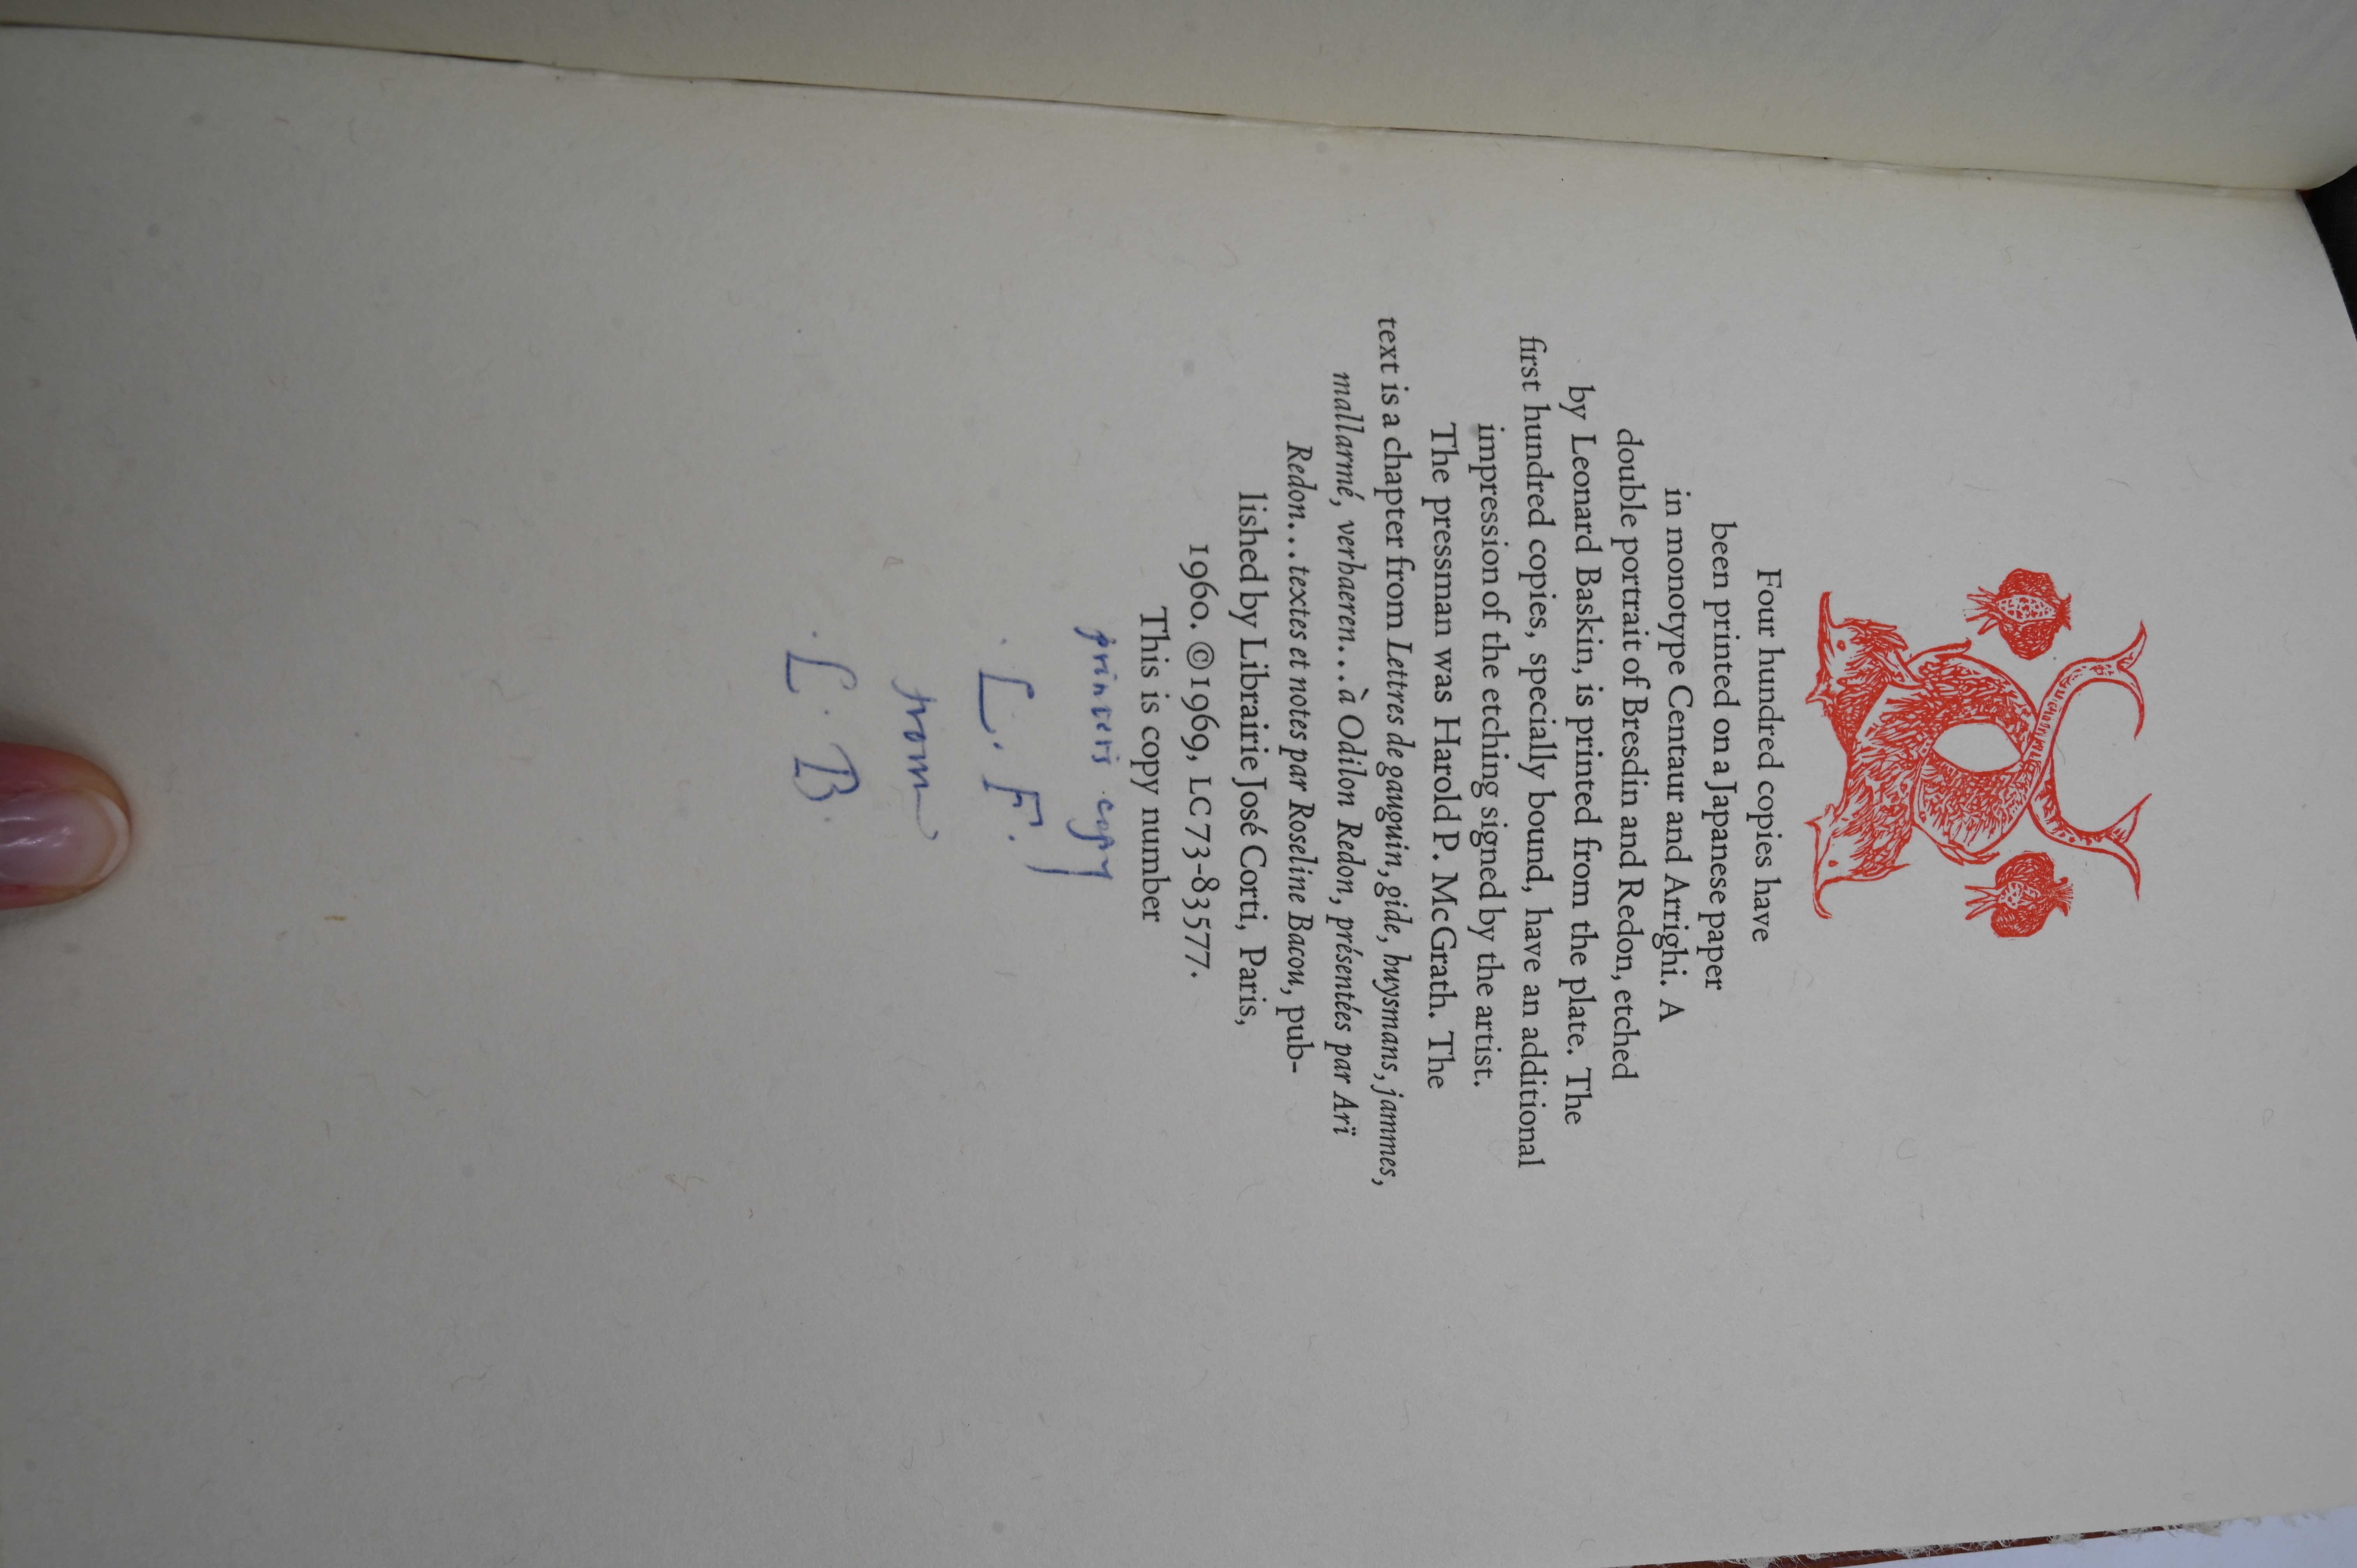 Four hundred copies have
been printed on a Japanese paper
in monotype Centaur and Arrighi. A
double portrait of Bresdin and Redon, etched
by Leonard Baskin, is printed from the plate. The
first hundred copies, specially bound, have an additional
impression of the etching signed by the artist.
The pressman was Harold P. McGrath. The
text is a chapter from Lettres de gauguin, gide, huysmans, jammes,
mallarmé, verhaeren... à Odilon Redon, présentées par Arï
Redon... textes et notes par Roseline Bacou, pub-
lished by Librairie José Corti, Paris,
1960. ©1969, LC 73-83577.
This is copy number
printer's copy
L. F.
from
L. B.